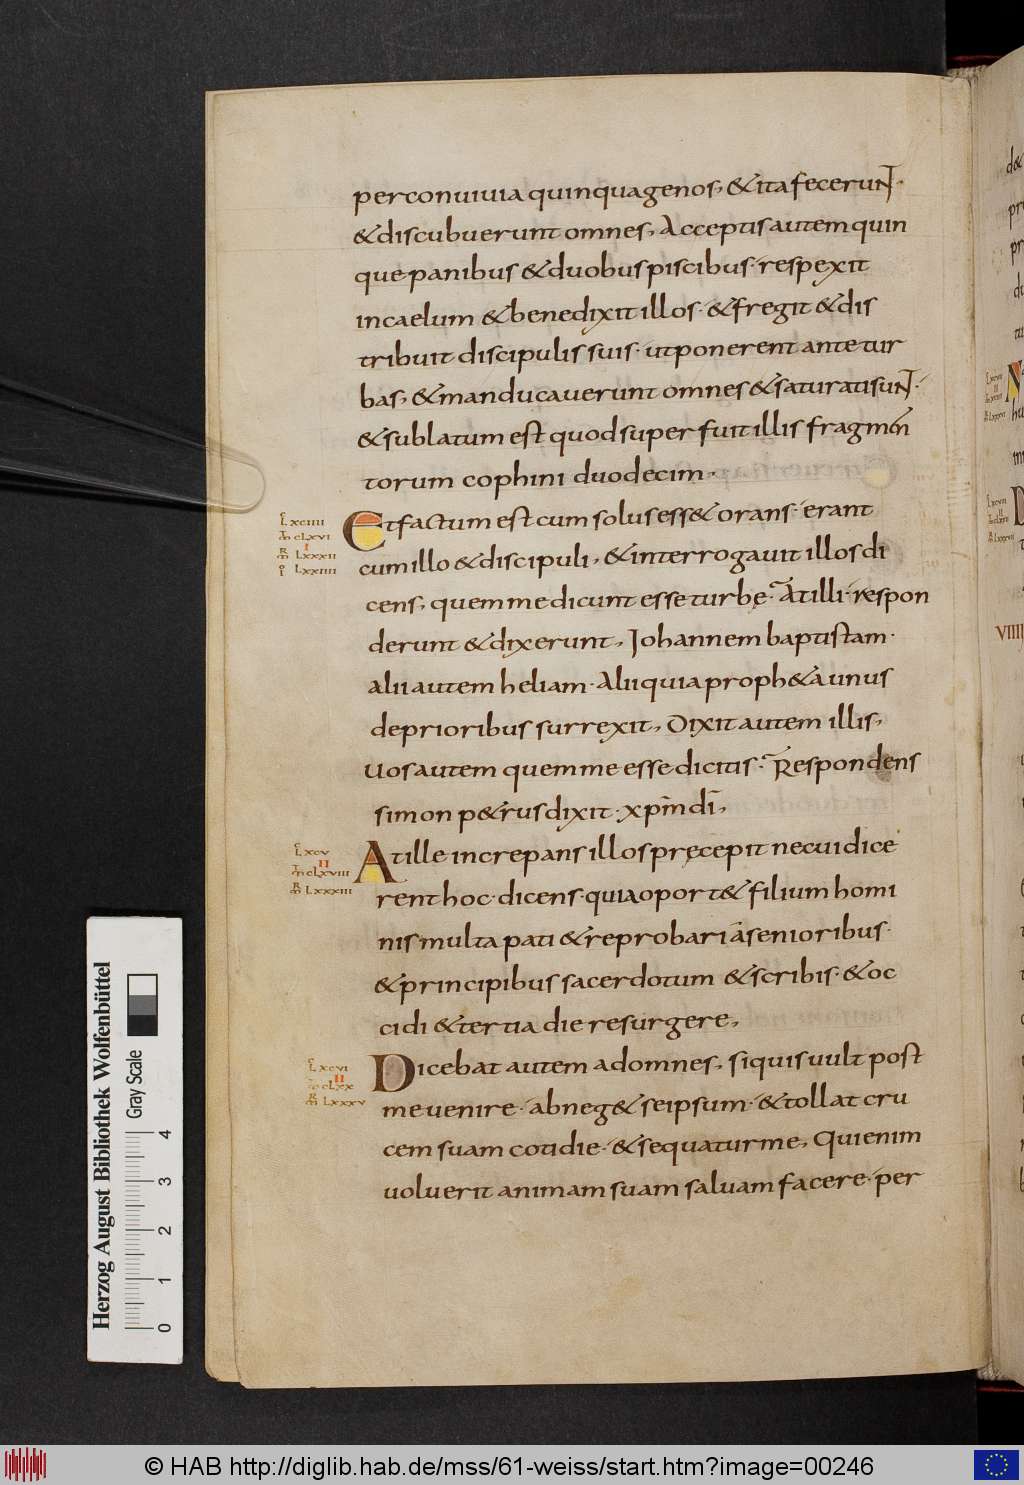 perconuiuia quinquagenos, & ita feceruNT·
& discubuerunt omnes, Acceptis autem quin
que panibus & duobus piscibus· respexit
incaelum & benedixit illos· & fregit & dis
tribuit discipulis suis· ut ponerent ante tur
bas, & manducauerunt omnes & saturati suNT·
& sublatum est quod super fuit illis fragmen
torum cophini duodecim,
Et factum est cum solus ess& orans· erant
cum illo & discipuli, & interrogauit illos di
cens, quem me dicunt esse turbę· At illi· respon
derunt & dixerunt, Iohannem baptistam·
alii autem heliam· Alii quia proph&a unus
deprioribus surrexit, Dixit autem illis,
Uos autem quem me esse dicitis· Respondens
simon p&rus dixit· xp̄m dī,
At ille increpans illos pręcepit necui dice
rent hoc· dicens· quia oport& filium homi
nis multa pati & reprobari a senioribus·
& principibus sacerdotum & scribis· & oc
cidi & tertia die resurgere,
Dicebat autem adomnes, siquis uult post
me uenire· abneg& seipsum· & tollat cru
cem suam cotidie· & sequatur me, Qui enim
uoluerit animam suam saluam facere· per
LXCIIII
CLXVI
I
LXXXII
LXXIIII
LXCV
II
CLXVIII
LXXXIII
LXCVI
II
CLXX
LXXXV
VIIII
Herzog August Bibliothek Wolfenbüttel
Gray Scale
0 1 2 3 4
© HAB http://diglib.hab.de/mss/61-weiss/start.htm?image=00246